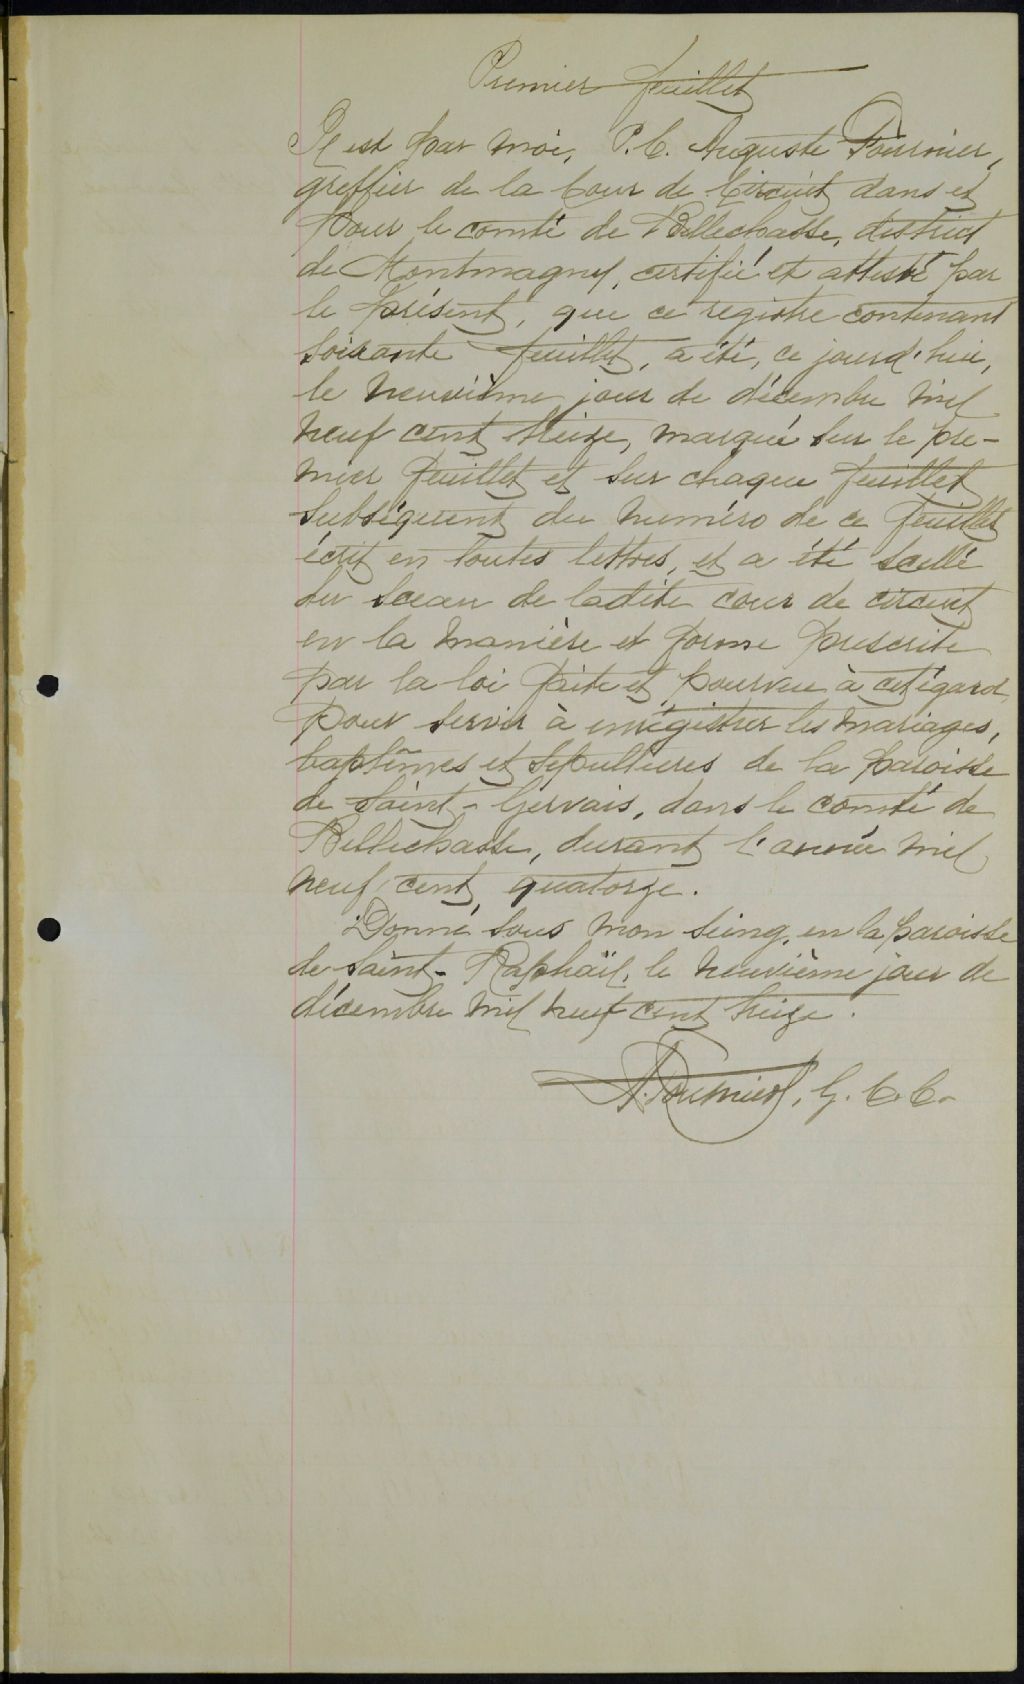 Premier feuillet
Il est par moi, P. C. Auguste Fournier,
greffier de la Cour de Circuit dans et
pour le comté de Bellechasse, district
de Montmagny, certifié et attesté par
le présent, que ce registre contenant
soixante feuillets, a été, ce jourd'hui,
le neuvième jour de décembre mil
neuf cent treize, marqué sur le pre-
mier feuillet et sur chaque feuillet
subséquent du numéro de ce feuillet
écrit en toutes lettres, et a été scellé
du sceau de ladite cour de circuit
en la manière et forme prescrite
par la loi faite et pourvue à cet égard,
pour servir à enrégistrer les mariages,
baptêmes et sépultures de la paroisse
de Saint-Gervais, dans le comté de
Bellechasse, durant l'année mil
neuf cent quatorze.
Donné sous mon seing, en la paroisse
de Saint-Raphaël, le neuvième jour de
décembre mil neuf cent treize.
A. Fournier, G. C. C.